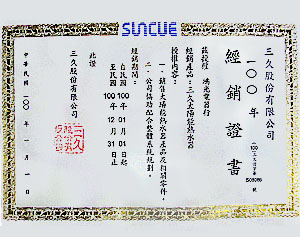 SUNCUE
三久股份有限公司
一〇〇年
經銷證書
100
S09086
號
茲授權 鴻光電器行
經銷產品：三久太陽能熱水器
授權內容：
一、銷售太陽能熱水器產品及相關零件。
二、公司協助配合整體系統規劃。
經銷期間：
自民國100年01月01日起
至民國100年12月31日止
此證
三久股份有限公司
中華民國一〇〇年一月一日